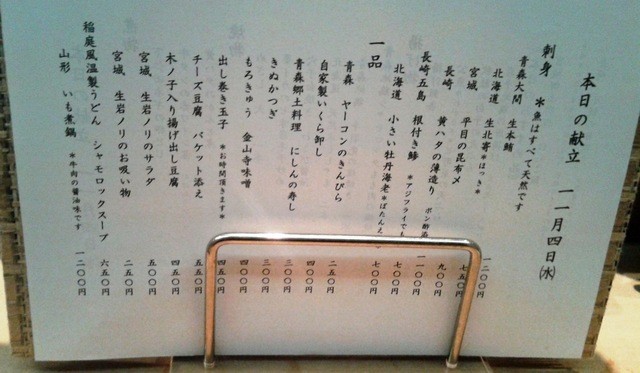 本日の献立　一一月四日㈬
刺身　＊魚はすべて天然です
青森大間　生本鮪　一二〇〇円
北海道　生北寄＊ほっき＊　七五〇円
宮城　平目の昆布〆　九〇〇円
長崎　黄ハタの薄造り　ポン酢　一一〇〇円
長崎五島　根付き鯵　＊アジフライでも　七〇〇円
北海道　小さい牡丹海老＊ぼたんえ　七〇〇円
一品
青森　ヤーコンのきんぴら　二五〇円
自家製いくら卸し　四〇〇円
青森郷土料理　にしんの寿し　三〇〇円
きぬかつぎ　三〇〇円
もろきゅう　金山寺味噌　四〇〇円
出し巻き玉子　＊お時間頂きます＊　四五〇円
チーズ豆腐　バケット添え　五五〇円
木ノ子入り揚げ出し豆腐　四五〇円
宮城　生岩ノリのサラダ　五〇〇円
宮城　生岩ノリのお吸い物　二五〇円
稲庭風温製うどん　シャモロックスープ　六五〇円
山形　いも煮鍋　＊牛肉の醤油味です　一二〇〇円